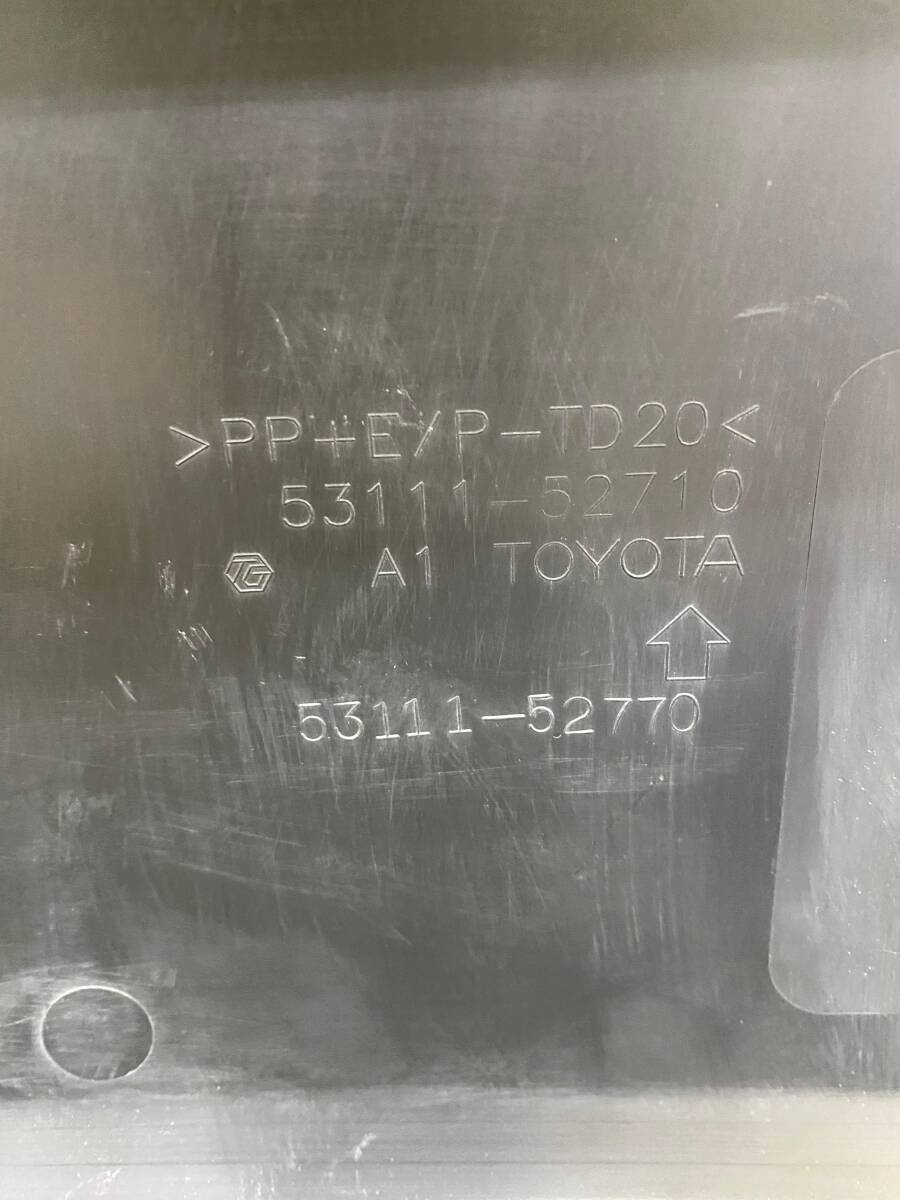 >PP+E/P-TD20<
53111-52710
TG A1 TOYOTA
53111-52770